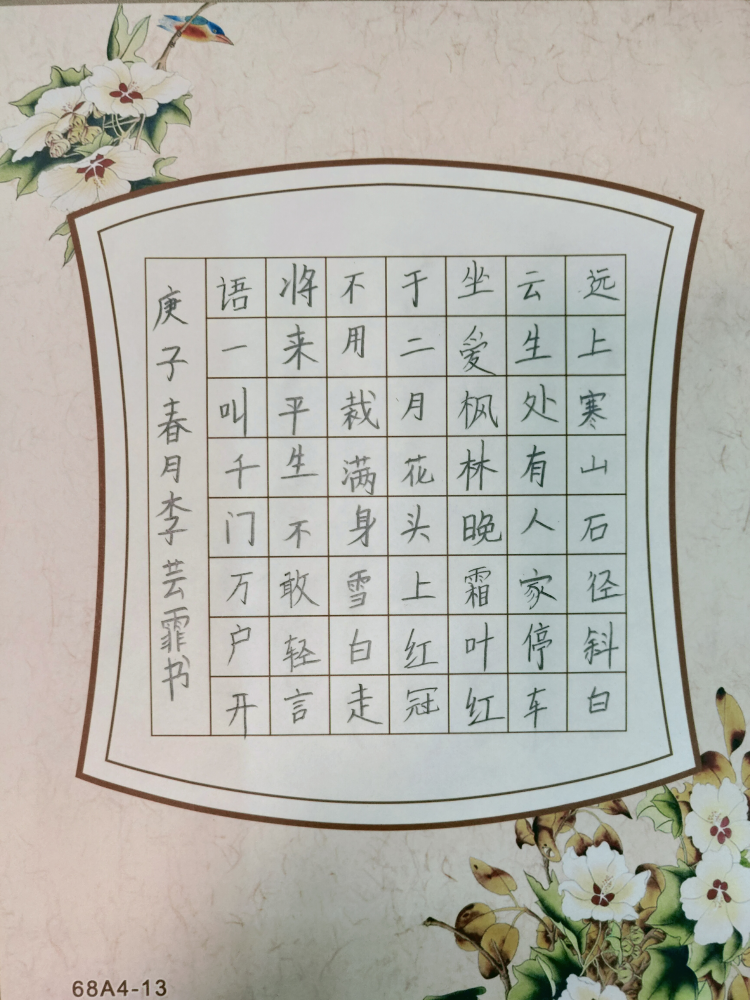 远上寒山石径斜白
云生处有人家停车
坐爱枫林晚霜叶红
于二月花头上红冠
不用裁满身雪白走
将来平生不敢轻言
语一叫千门万户开
庚子春月李芸霏书
68A4-13